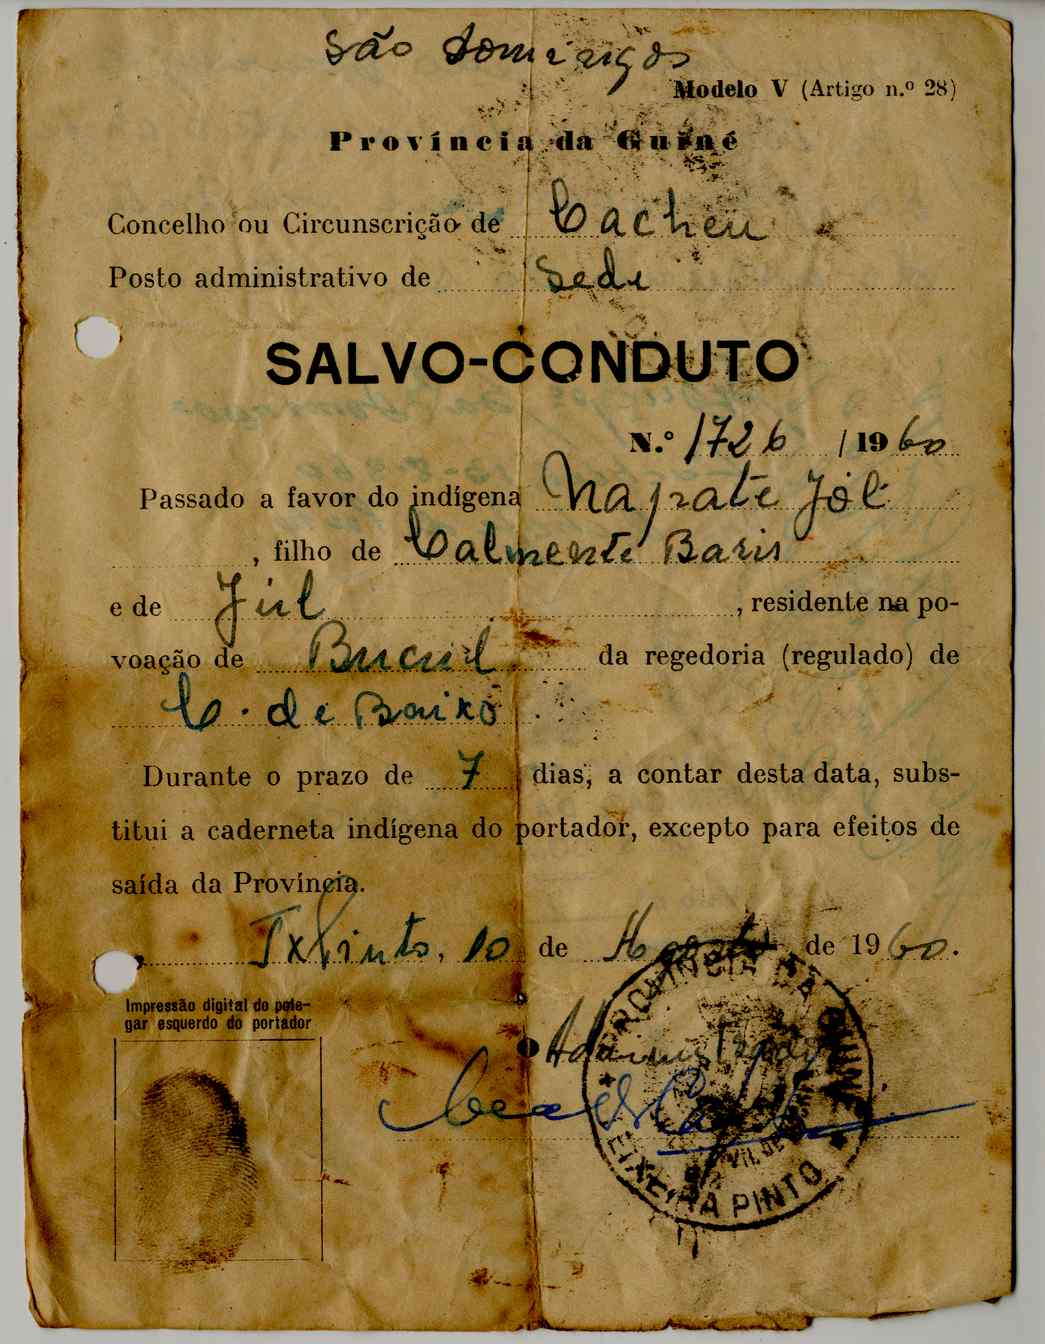 São Domingos
Modelo V (Artigo n.º 28)
Província da Guiné
Concelho ou Circunscrição de Cacheu
Posto administrativo de Sede
SALVO-CONDUTO
N.º 1726 /1960
Passado a favor do indígena Naprate Jól
, filho de Calmente Baris
e de Júl , residente na po-
voação de Bucul da regedoria (regulado) de
C. de Baixo
Durante o prazo de 7 dias, a contar desta data, subs-
titui a caderneta indígena do portador, excepto para efeitos de
saída da Província.
TxPinto, 10 de Agosto de 1960.
Impressão digital do pole-
gar esquerdo do portador
O Administrador
PROVÍNCIA DA GUINÉ
TEIXEIRA PINTO